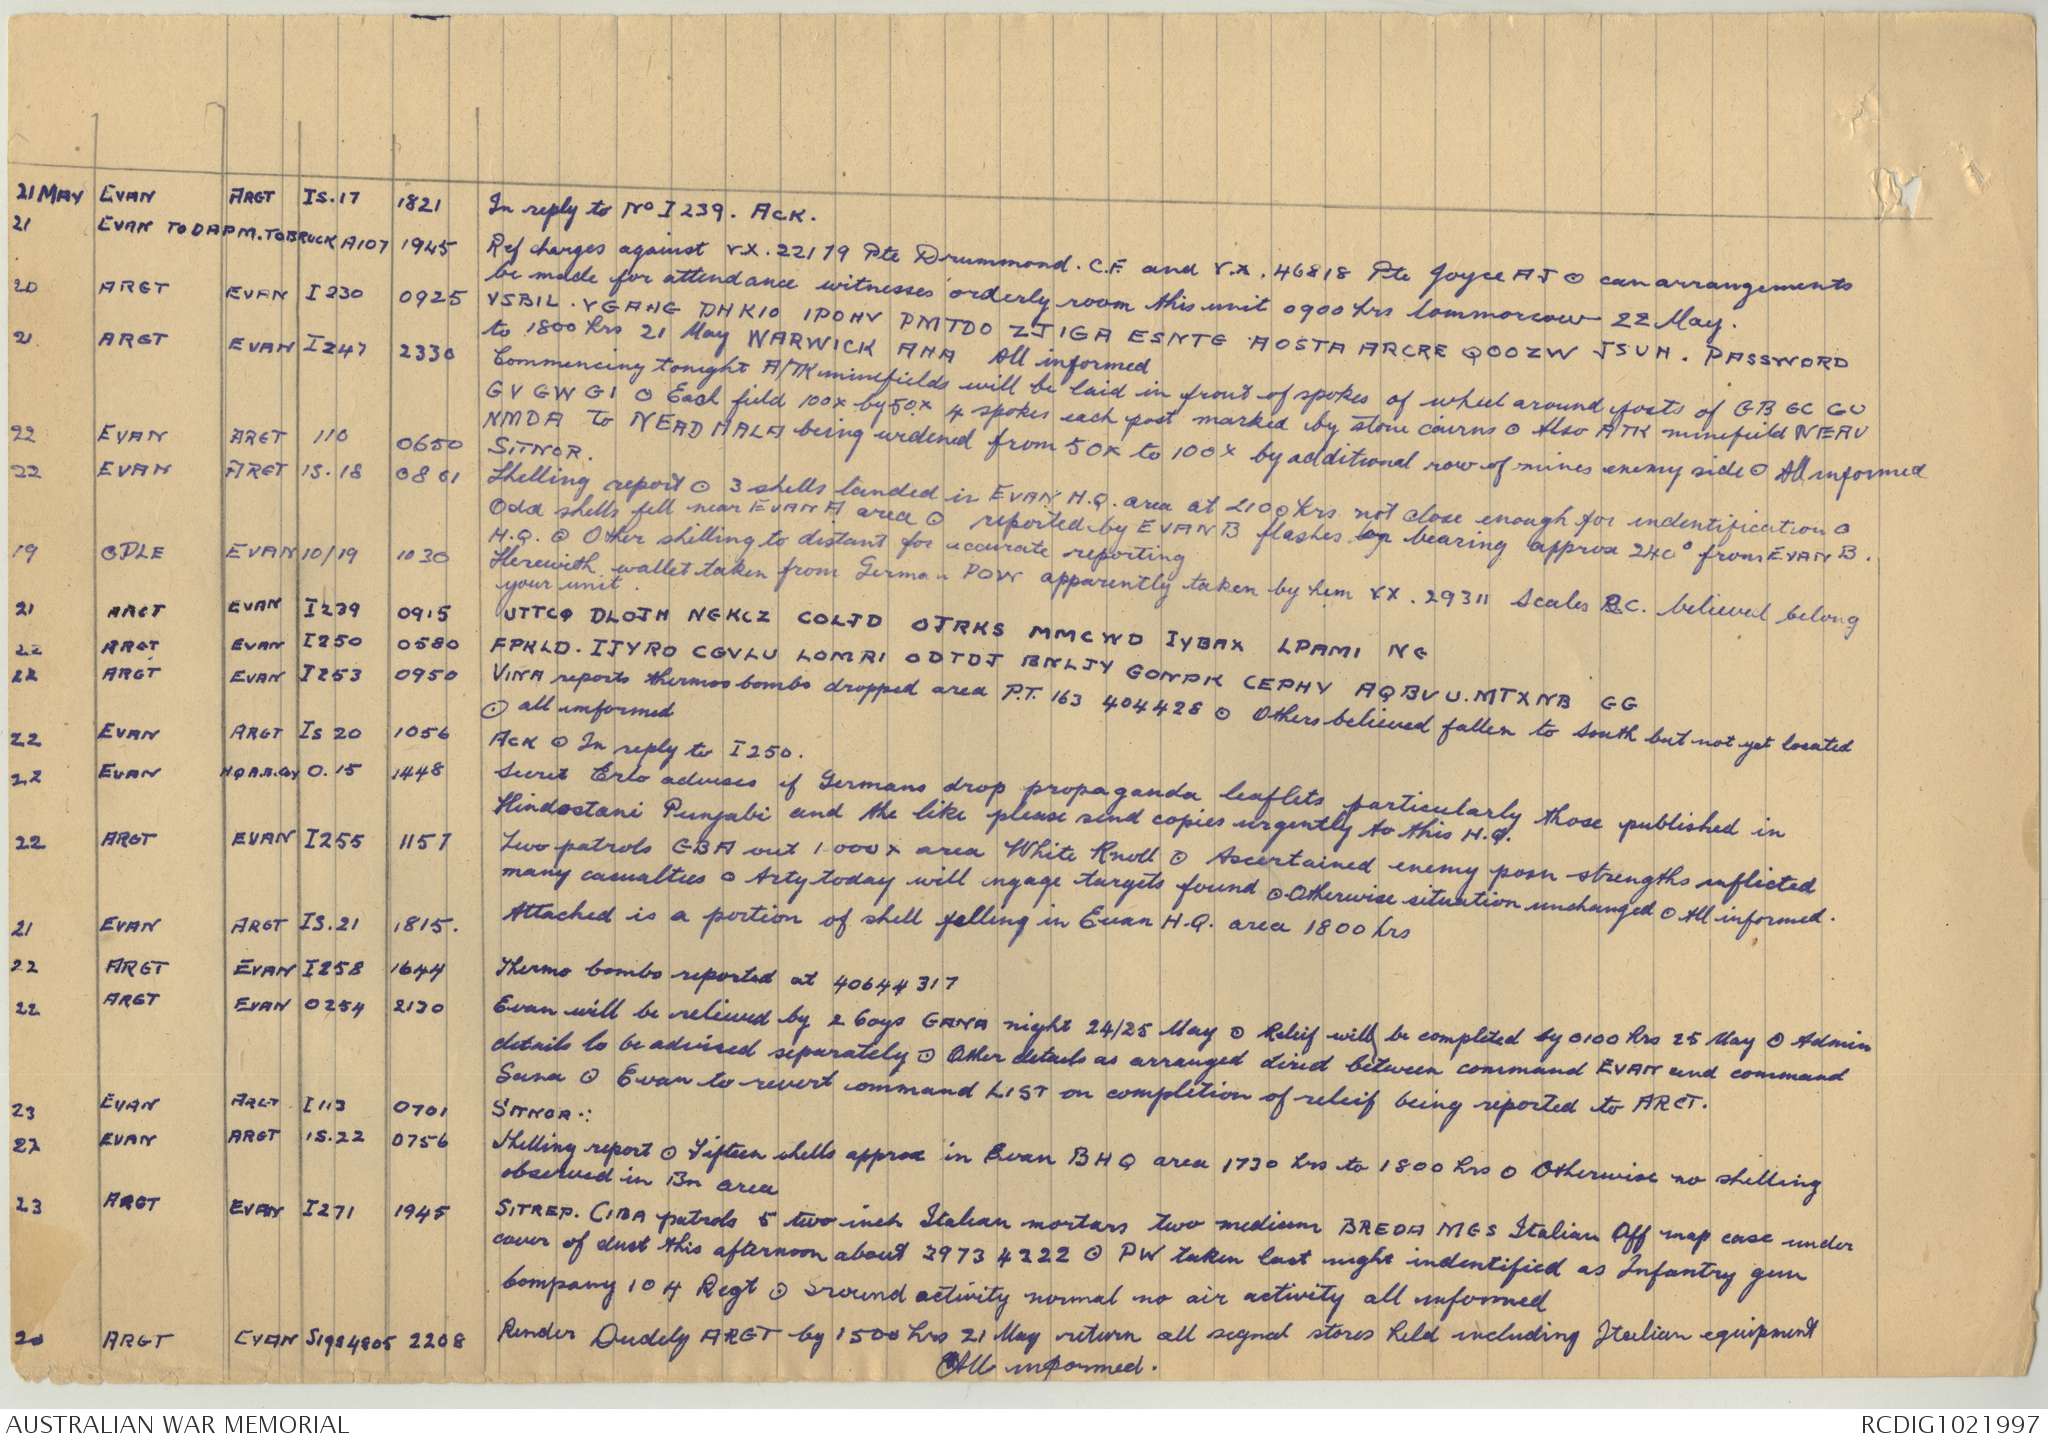 21 MAY EVAN ARGT IS.17 1821 In reply to No I 239. ACK.
21 EVAN TO DAPM. TOBRUCK A107 1945 Ref charges against VX.22179 Pte Drummond. C.F. and V.X.46818 Pte Joyce A J ⊙ can arrangements
be made for attendance witnesses orderly room this unit 0900 hrs tommorrow 22 May.
20 ARGT EVAN I230 0925 VSBIL. YGAHG DHKIO IPOHV PMTDO ZJIGA ESNTG AOSTA ARCRE QOOZW JSUH. PASSWORD
to 1800 hrs 21 May WARWICK AHA All informed
21 ARGT EVAN I247 2330 Commencing tonight A/TK minefields will be laid in front of spokes of wheel around posts of GB GC GU
GV GW GI ⊙ Each field 100x by 50x 4 spokes each post marked by stone cairns ⊙ Also ATK minefield NEAU
NMDA to NEAD MALA being widened from 50x to 100x by additional row of mines enemy side ⊙ All informed
22 EVAN ARGT 110 0650 SITNOR.
22 EVAN ARGT IS.18 0801 Shelling report ⊙ 3 shells landed in EVAN H.Q. area at 2100 hrs not close enough for indentification ⊙
Odd shells fell near EVAN A area ⊙ reported by EVAN B flashes on bearing approx 240° from EVAN B.
H.Q. ⊙ Other shilling to distant for accurate reporting
19 ODLE EVAN 10/19 1030 Herewith wallet taken from German POW apparently taken by him VX.29311 Scales R.C. believed belong
your unit.
21 ARGT EVAN I239 0915 UTTCQ DLOJH NGKCZ COLJD OJRKS MMCWD IYBAX LPAMI NG
22 ARGT EVAN I250 0580 FPKLD. IJYRO CGVLU LOMRI ODTDJ BNLJY GONPK CEPHV AQBVU. MTXNB GG
22 ARGT EVAN I253 0950 VINA reports thermos bombs dropped area P.T. 163 404428 ⊙ Others believed fallen to South but not yet located
⊙ all informed
22 EVAN ARGT IS 20 1056 ACK ⊙ In reply to I250.
22 EVAN O.15 1448 Secret Erlo advises if Germans drop propaganda leaflets particularly those published in
Hindostani Punjabi and the like please send copies urgently to this H.Q.
22 ARGT EVAN I255 1157 Two patrols GBA out 1000x area White Knoll ⊙ Ascertained enemy posn strengths inflicted
many casualties ⊙ Arty today will ngage targets found ⊙ Otherwise situation unchanged ⊙ All informed.
21 EVAN ARGT IS.21 1815. Attached is a portion of shell falling in Evan H.Q. area 1800 hrs
22 ARGT EVAN I258 1644 Thermo bombs reported at 40644317
22 ARGT EVAN O254 2130 Evan will be relieved by 2 Coys GANA night 24/25 May ⊙ Relief will be completed by 0100 hrs 25 May ⊙ Admin
details to be advised separately ⊙ Other details as arranged direct between command EVAN and command
Sana ⊙ Evan to revert command LIST on completion of relief being reported to ARGT.
23 EVAN ARGT I113 0701 SITNOR.:
23 EVAN ARGT IS.22 0756 Shelling report ⊙ Fifteen shells approx in Evan BHQ area 1730 hrs to 1800 hrs ⊙ Otherwise no shelling
observed in Bn area
23 ARGT EVAN I271 1945 SITREP. CIBA patrols 5 two inch Italian mortars two medium BREDA MGS Italian Off map case under
cover of dust this afternoon about 39734222 ⊙ PW taken last night indentified as Infantry gun
Company 104 Regt ⊙ Ground activity normal no air activity all informed
20 ARGT EVAN SIG84805 2208 Render Dudely ARGT by 1500 hrs 21 May return all signal stores held including Italian equipment
All informed.
AUSTRALIAN WAR MEMORIAL
RCDIG1021997